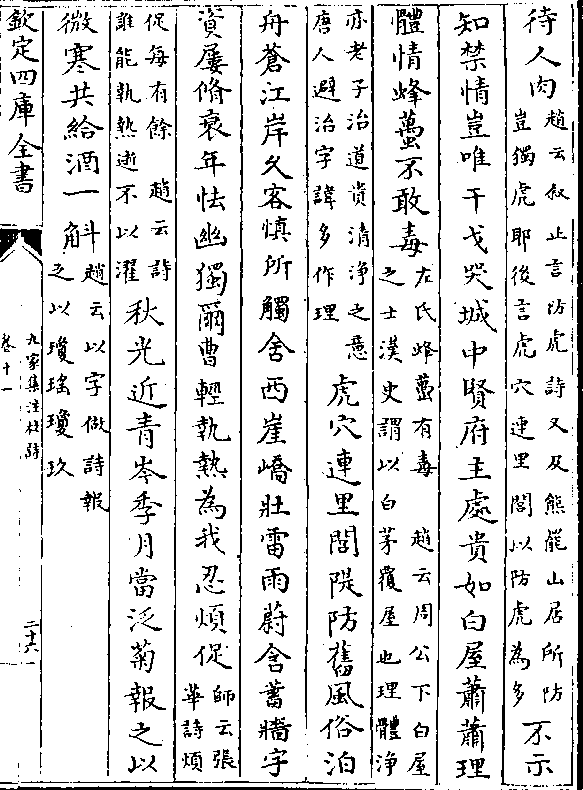 待人肉趙云叙止言防虎詩又及熊羆山居所防
豈獨虎耶後言虎穴連里閭以防虎為多不示
知禁情豈唯干戈哭城中賢府主處貴如白屋蕭蕭理
體情蜂蠆不敢毒左氏蜂蠆有毒 趙云周公下白屋
之士漢史謂以白茅覆屋也理體淨
亦老子治道貴清淨之意
唐人避治字諱多作理虎穴連里閭隄防舊風俗泊
舟蒼江岸久客慎所觸舍西崖嶠壯雷雨蔚含蓄牆宇
資屢脩衰年怯幽獨爾曹輕執熱為我忍煩促師云張
華詩煩
促每有餘 趙云詩
誰能執熱逝不以濯秋光近青岑季月當泛菊報之以
微寒共給酒一斛趙云以字做詩報
之以瓊瑤瓊玖
欽定四庫全書
九家集注杜詩
卷十一
二十六